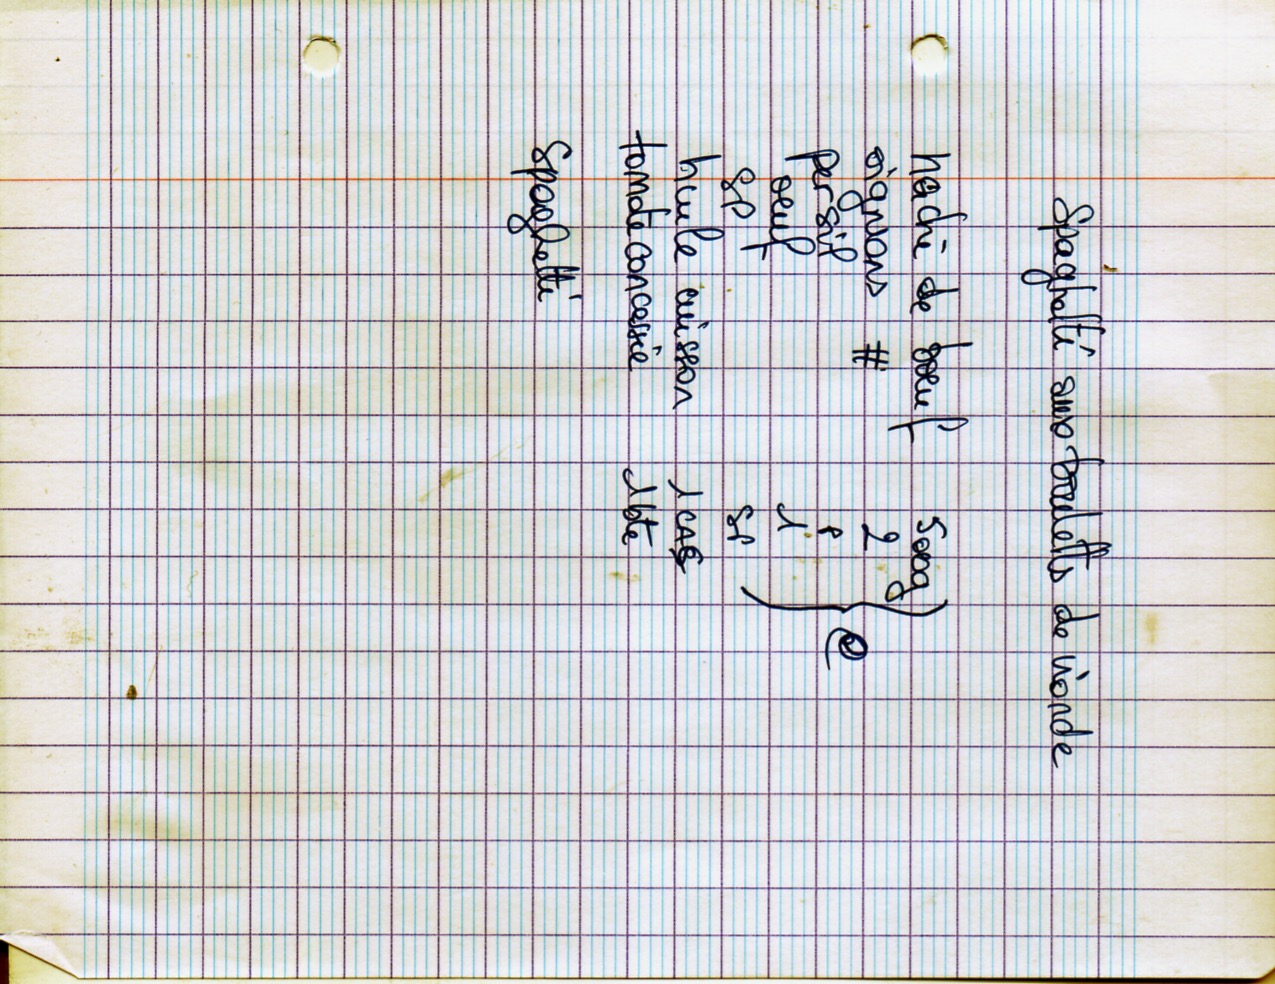 Spaghetti aux boulettes de viande
haché de boeuf 500g
oignons # 2
persil P
oeuf 1
SP SP
huile cuisson 1 CAS
tomate concassée 1 bte
Spaghetti